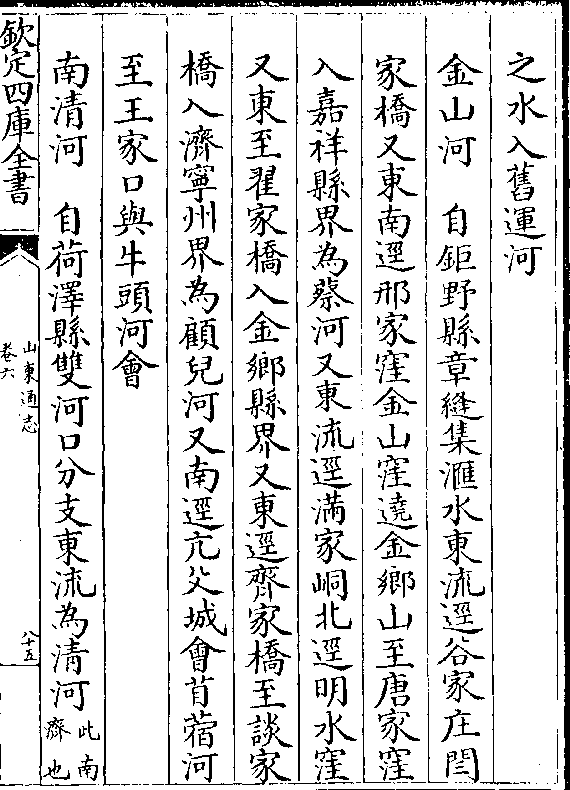 之水入舊運河
金山河　自鉅野縣章縫集滙水東流逕谷家庄閆
家橋又東南逕邢家窪金山窪遶金鄉山至唐家窪
入嘉祥縣界為蔡河又東流逕滿家峒北逕明水窪
又東至翟家橋入金鄉縣界又東逕齊家橋至談家
橋入濟寧州界為顧兒河又南逕亢父城會苜蓿河
至王家口與牛頭河會
南清河　自荷澤縣雙河口分支東流為清河此南
濟也
欽定四庫全書
山東通志
卷六
八十五